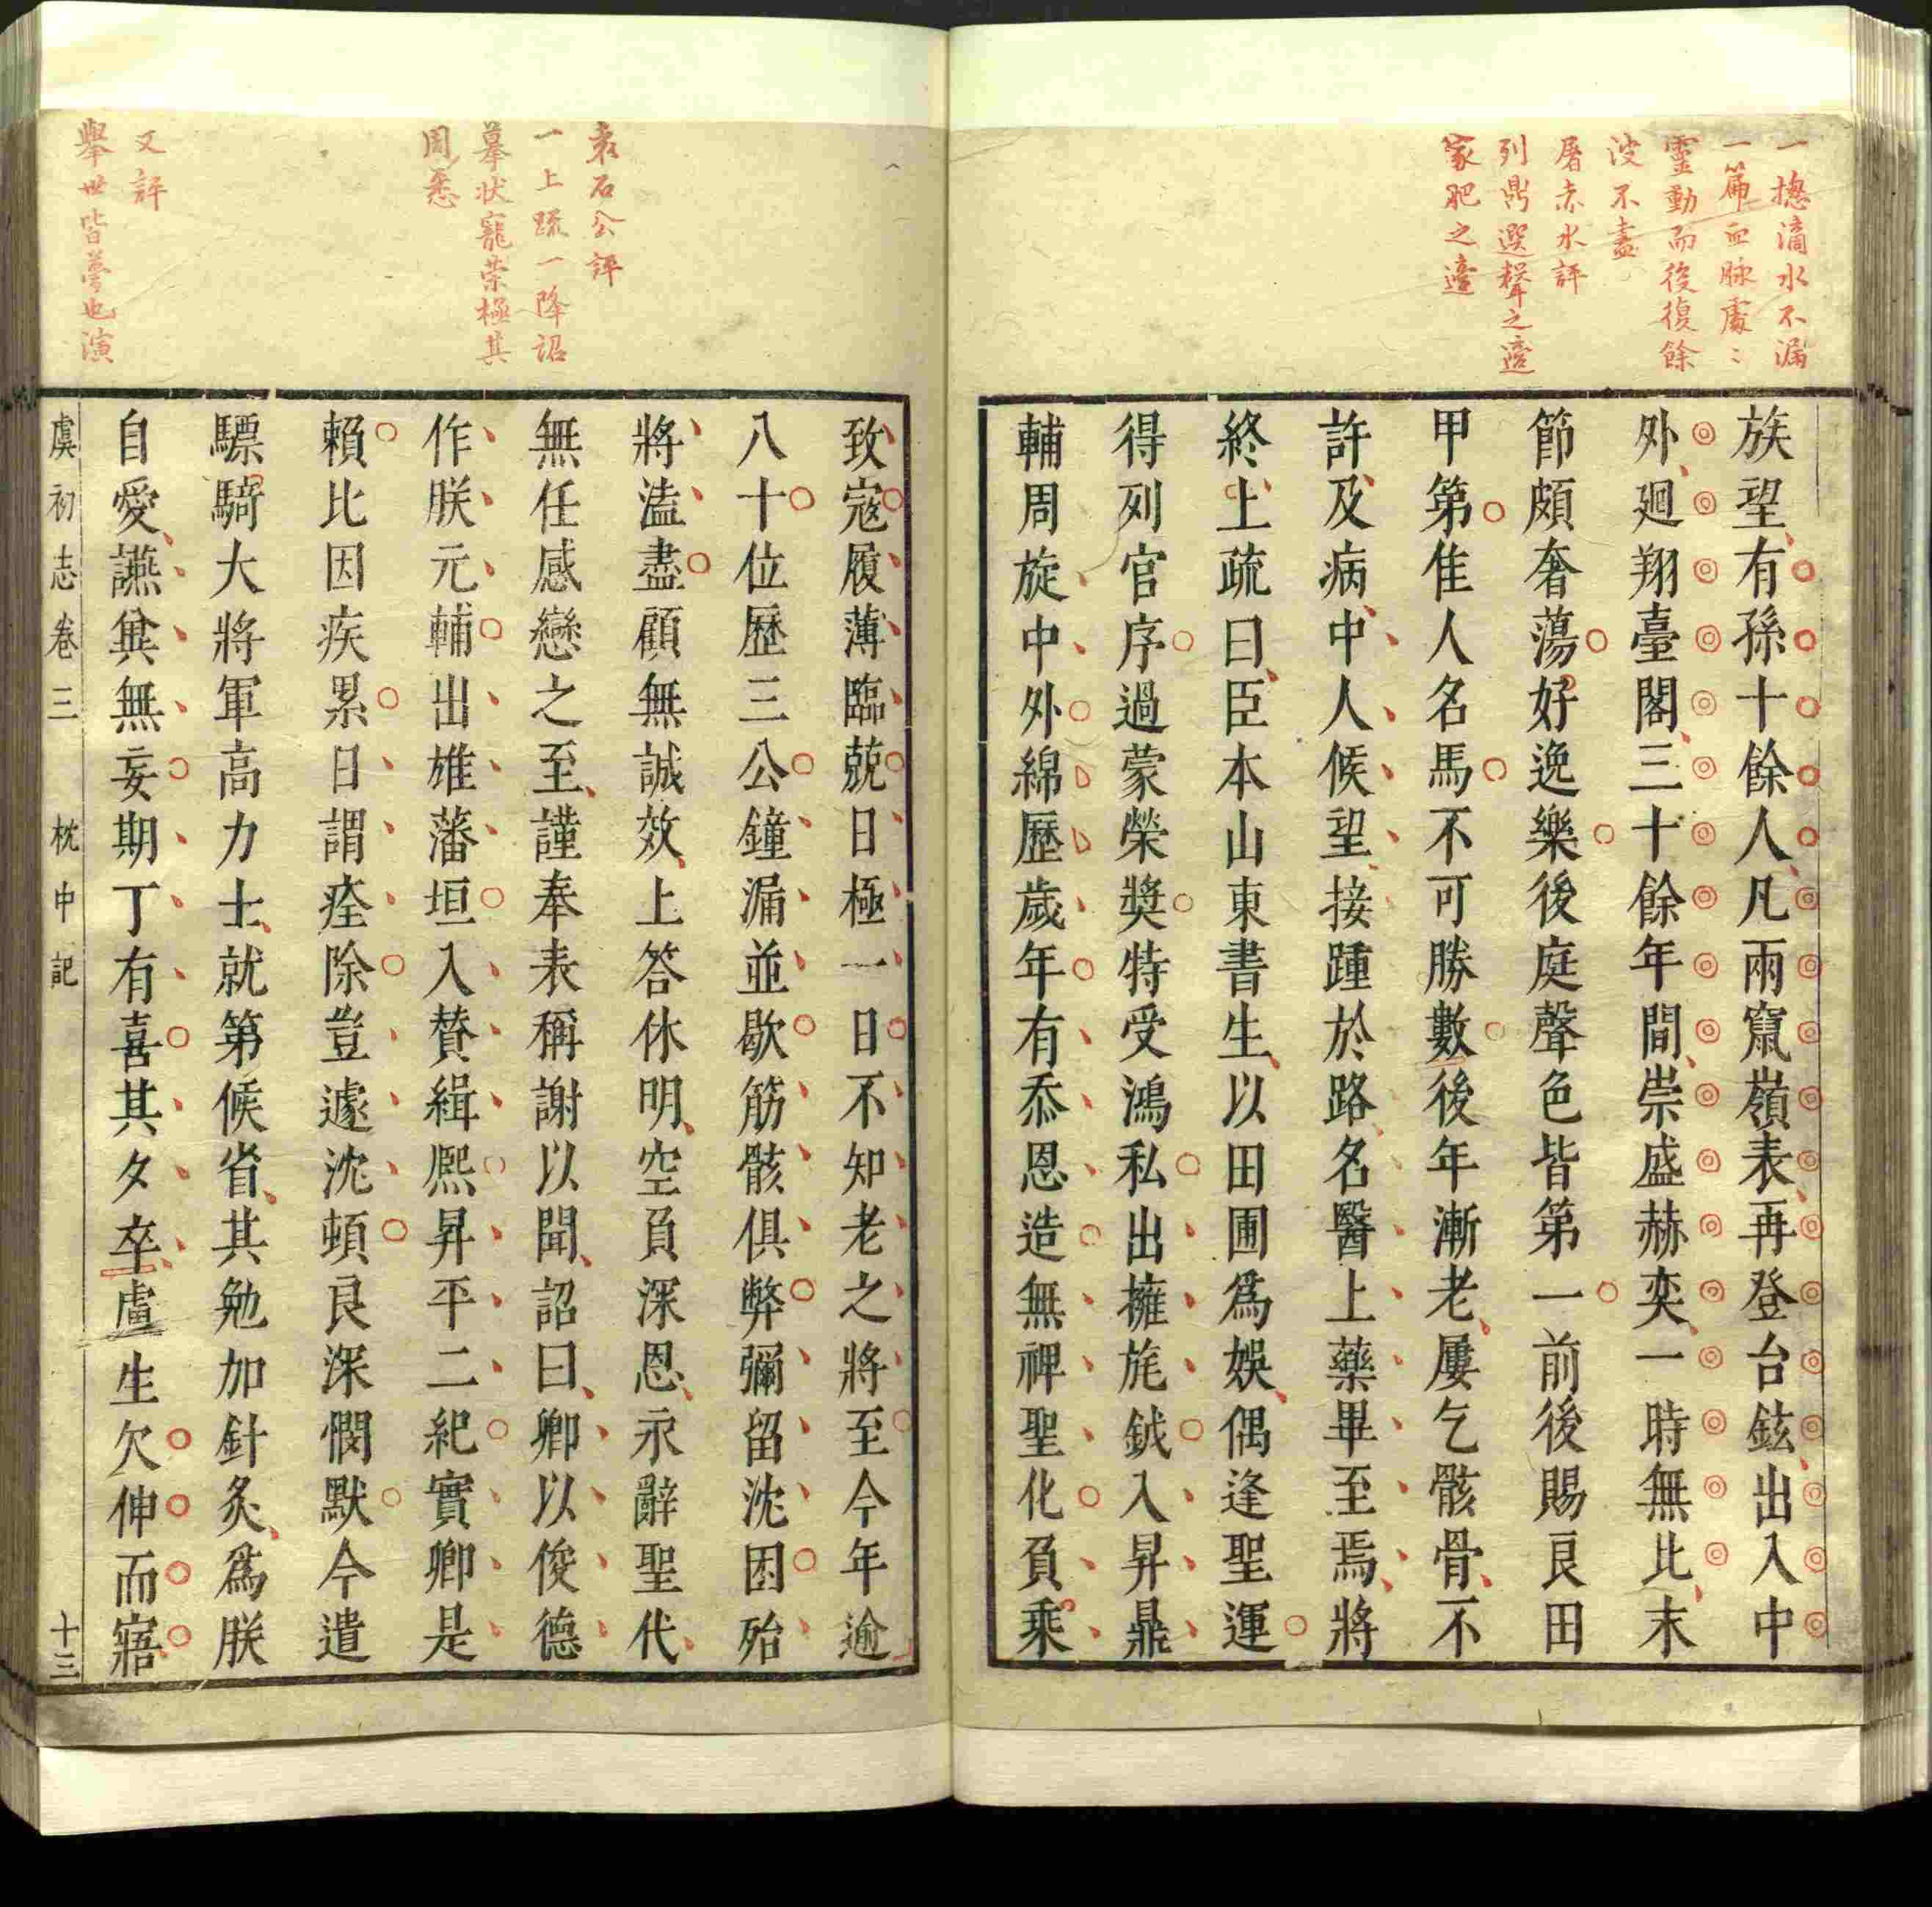 一摠滴水不漏
一篇血脉處〻
靈動而後復餘
波不盡
屠赤水評
列鼎選聲之適
家肥之適
族望有孫十餘人凡兩竄嶺表再登台鉉出入中
外廻翔臺閣三十餘年間崇盛赫奕一時無比末
節頗奢蕩好逸樂後庭聲色皆第一前後賜良田
甲第佳人名馬不可勝數後年漸老屢乞骸骨不
許及病中人候望接踵於路名醫上藥畢至焉將
終上疏曰臣本山東書生以田圃爲娛偶逢聖運
得列官序過蒙榮奬特受鴻私出擁旄鉞入昇鼎
輔周旋中外綿歷歲年有忝恩造無禆聖化負乘
袁石公評
一上疏一降詔
摹状寵榮極其
周悉
又評
舉世皆夢也演
致寇履薄臨兢日極一日不知老之將至今年逾
八十位歷三公鐘漏並歇筋骸俱弊彌留沈困殆
將溘盡顧無誠效上答休明空負深恩永辭聖代
無任感戀之至謹奉表稱謝以聞詔曰卿以俊德
作朕元輔出雄藩垣入贊緝熈昇平二紀實卿是
賴比因疾累日謂痊除豈遽沈頓良深憫默今遣
驃騎大將軍高力士就第候省其勉加針炙爲朕
自愛讌兾無妄期丁有喜其夕卒盧生欠伸而寤
虞初志卷三 枕中記 十三